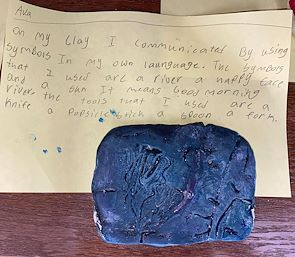 Ava
On my Clay I communicated By using
Symbols In my own launguage. The Symbols
that I used are a river a happy face
and a Sun It means Good morning
rivers the tools that I used are a
knife a Popsicle stick a spoon a fork.